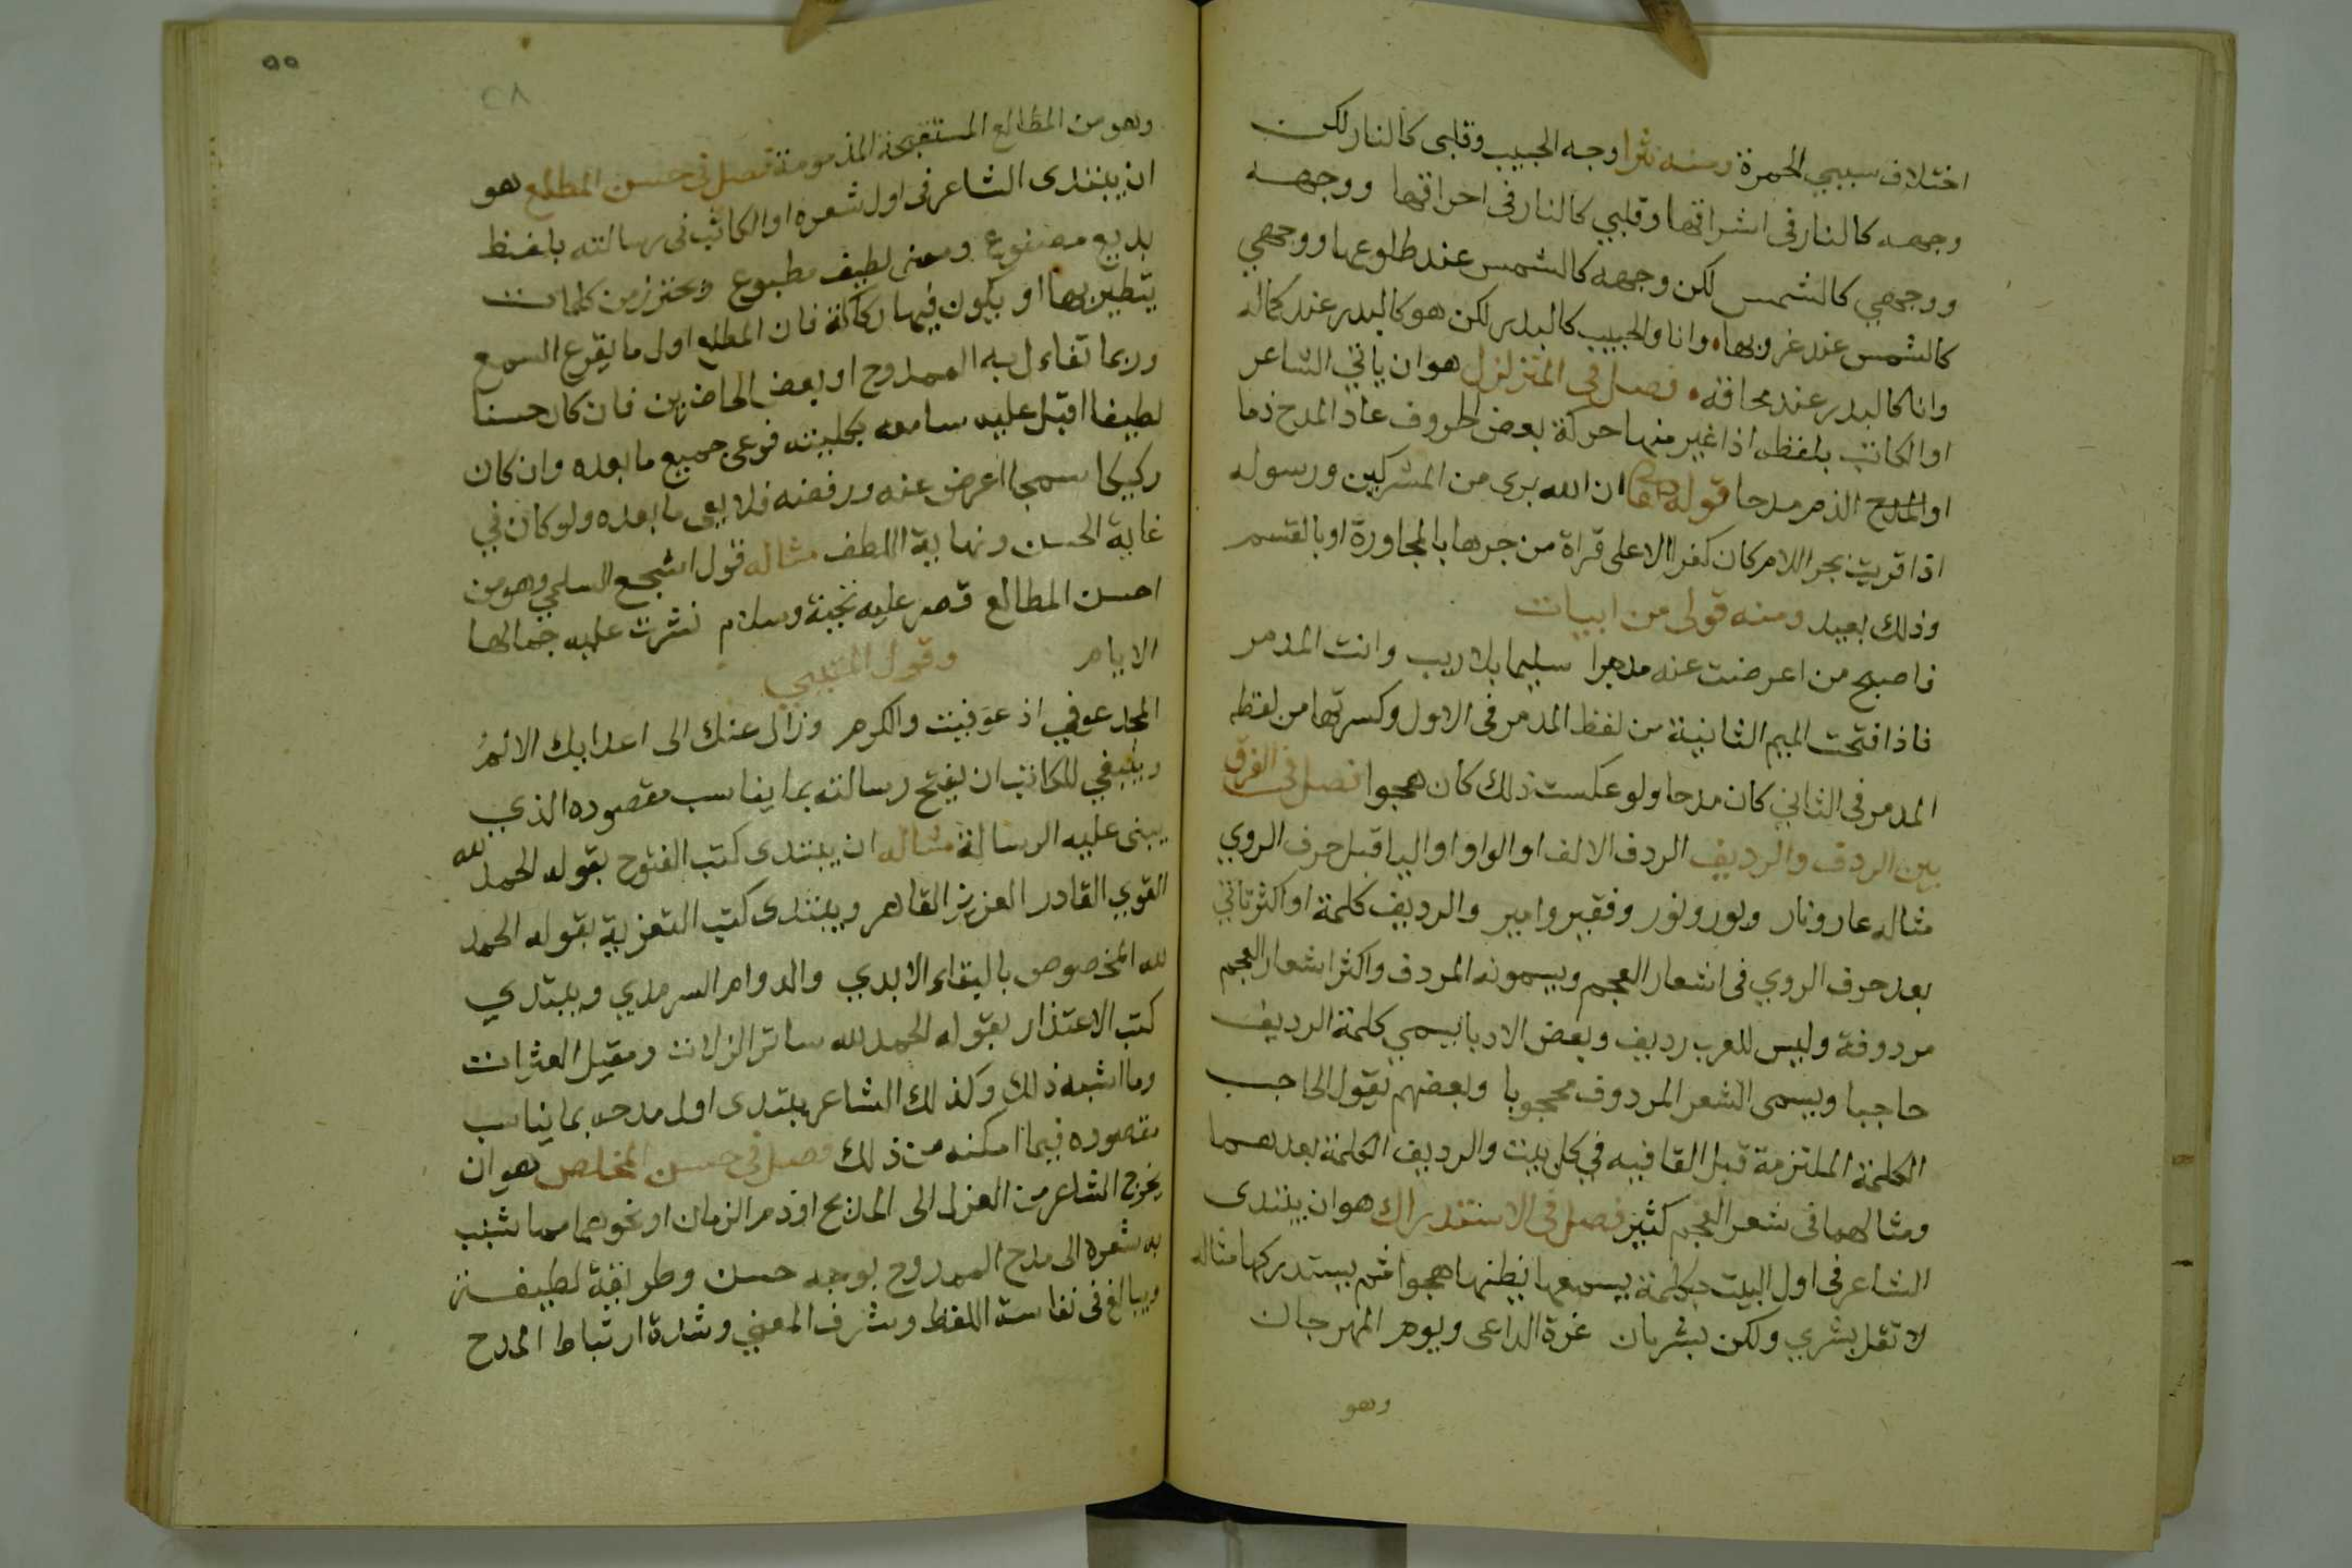 اختلاف سببي الحمرة ومنه نثرا وجه الحبيب وقلبي كالنار لكن
وجهه كالنار في اشراقها وقلبي كالنار في احراقها ووجهه
ووجهي كالشمس لكن وجهه كالشمس عند طلوعها ووجهي
كالشمس عند غروبها وانا والحبيب كالبدر لكن هو كالبدر عند كماله
وانا كالبدر عند محاقه فصل في المتزلزل هو ان ياتي الشاعر
او الكاتب بلفظه اذا غير منها حركة بعض الحروف عاد المدح ذما
او الذم مدحا قوله تعا ان الله برى من المشركين ورسوله
اذا قريت بجر اللام كان كفرا الا على قراة من جرها بالمجاورة او بالقسم
وذلك بعيد ومنه قولي من ابيات
فاصبح من اعرضت عنه مدمرا سليما بلا ريب وانت المدمر
فاذا فتحت الميم الثانية من لفظ المدمر في الاول وكسرتها من لفظه
المدمر في الثاني كان مدحا ولو عكست ذلك كان هجوا فصل في الفرق
بين الردف والرديف الردف الالف او الواو او اليا قبل حرف الروي
مثاله عار ونار وبور ونور وفقير وامير والرديف كلمة او اكثر تاتي
بعد حرف الروي في اشعار العجم ويسمونه المردف واكثر اشعار العجم
مردوفة وليس للعرب رديف وبعض الادبا يسمي كلمة الرديف
حاجبا ويسمى الشعر المردوف محجوبا وبعضهم يقول الحاجب
الكلمة الملتزمة قبل القافيه في كل بيت والرديف الكلمة بعدهما
ومثالهما في شعر العجم كثير فصل في الاستدراك هو ان يبتدى
الشاعر في اول البيت بكلمة يسمعها يظنها هجوا ثم يستدركها مثاله
لا تقل بشري ولكن بشريان غرة الداعى ويوم المهرجان
وهو
٥٥
٢٨
وهو من المطالع المستقبحة المذمومة فصل في حسن المطلع هو
ان يبتدى الشاعر في اول شعره او الكاتب في رسالته بلفظ
بديع مصنوع ومعنى لطيف مطبوع ويحترز من كلمات
يتطير بها او يكون فيها ركاكة فان المطلع اول ما يقرع السمع
وربما تفاءل به الممدوح او بعض الحاضرين فان كان حسنا
لطيفا اقبل عليه سامعه بكليته فوعى جميع ما بعده وان كان
ركيكا سمجا اعرض عنه ورفضه فلا يعى ما بعده ولو كان في
غاية الحسن ونهاية اللطف مثاله قول اشجع السلمي وهو من
احسن المطالع قصر عليه تحية وسلام نشرت عليه جمالها
الايام وقول المتنبي
المجد عوفي اذ عوفيت والكرم وزال عنك الى اعدايك الالمُ
وينبغي للكاتب ان يفتح رسالته بما يناسب مقصوده الذي
يبنى عليه الرسالة مثاله ان يبتدى كتب الفتوح بقوله الحمد لله
القوي القادر العزيز القاهر ويبتدى كتب التعزية بقوله الحمد
لله المخصوص بالبقاء الابدي والدوام السرمدي ويبتدي
كتب الاعتذار بقوله الحمد لله ساتر الزلات ومقيل العثرات
وما اشبه ذلك وكذلك الشاعر يبتدى اول مدحه بما يناسب
مقصوده فيما امكنه من ذلك فصل في حسن المخلص هو ان
يخرج الشاعر من الغزل الى المديح او ذم الزمان او نحوهما مما شبب
به شعره الى مدح الممدوح بوجه حسن وطريقة لطيفة
ويبالغ في نفاسة اللفظ وشرف المعني وشدة ارتباط المدح